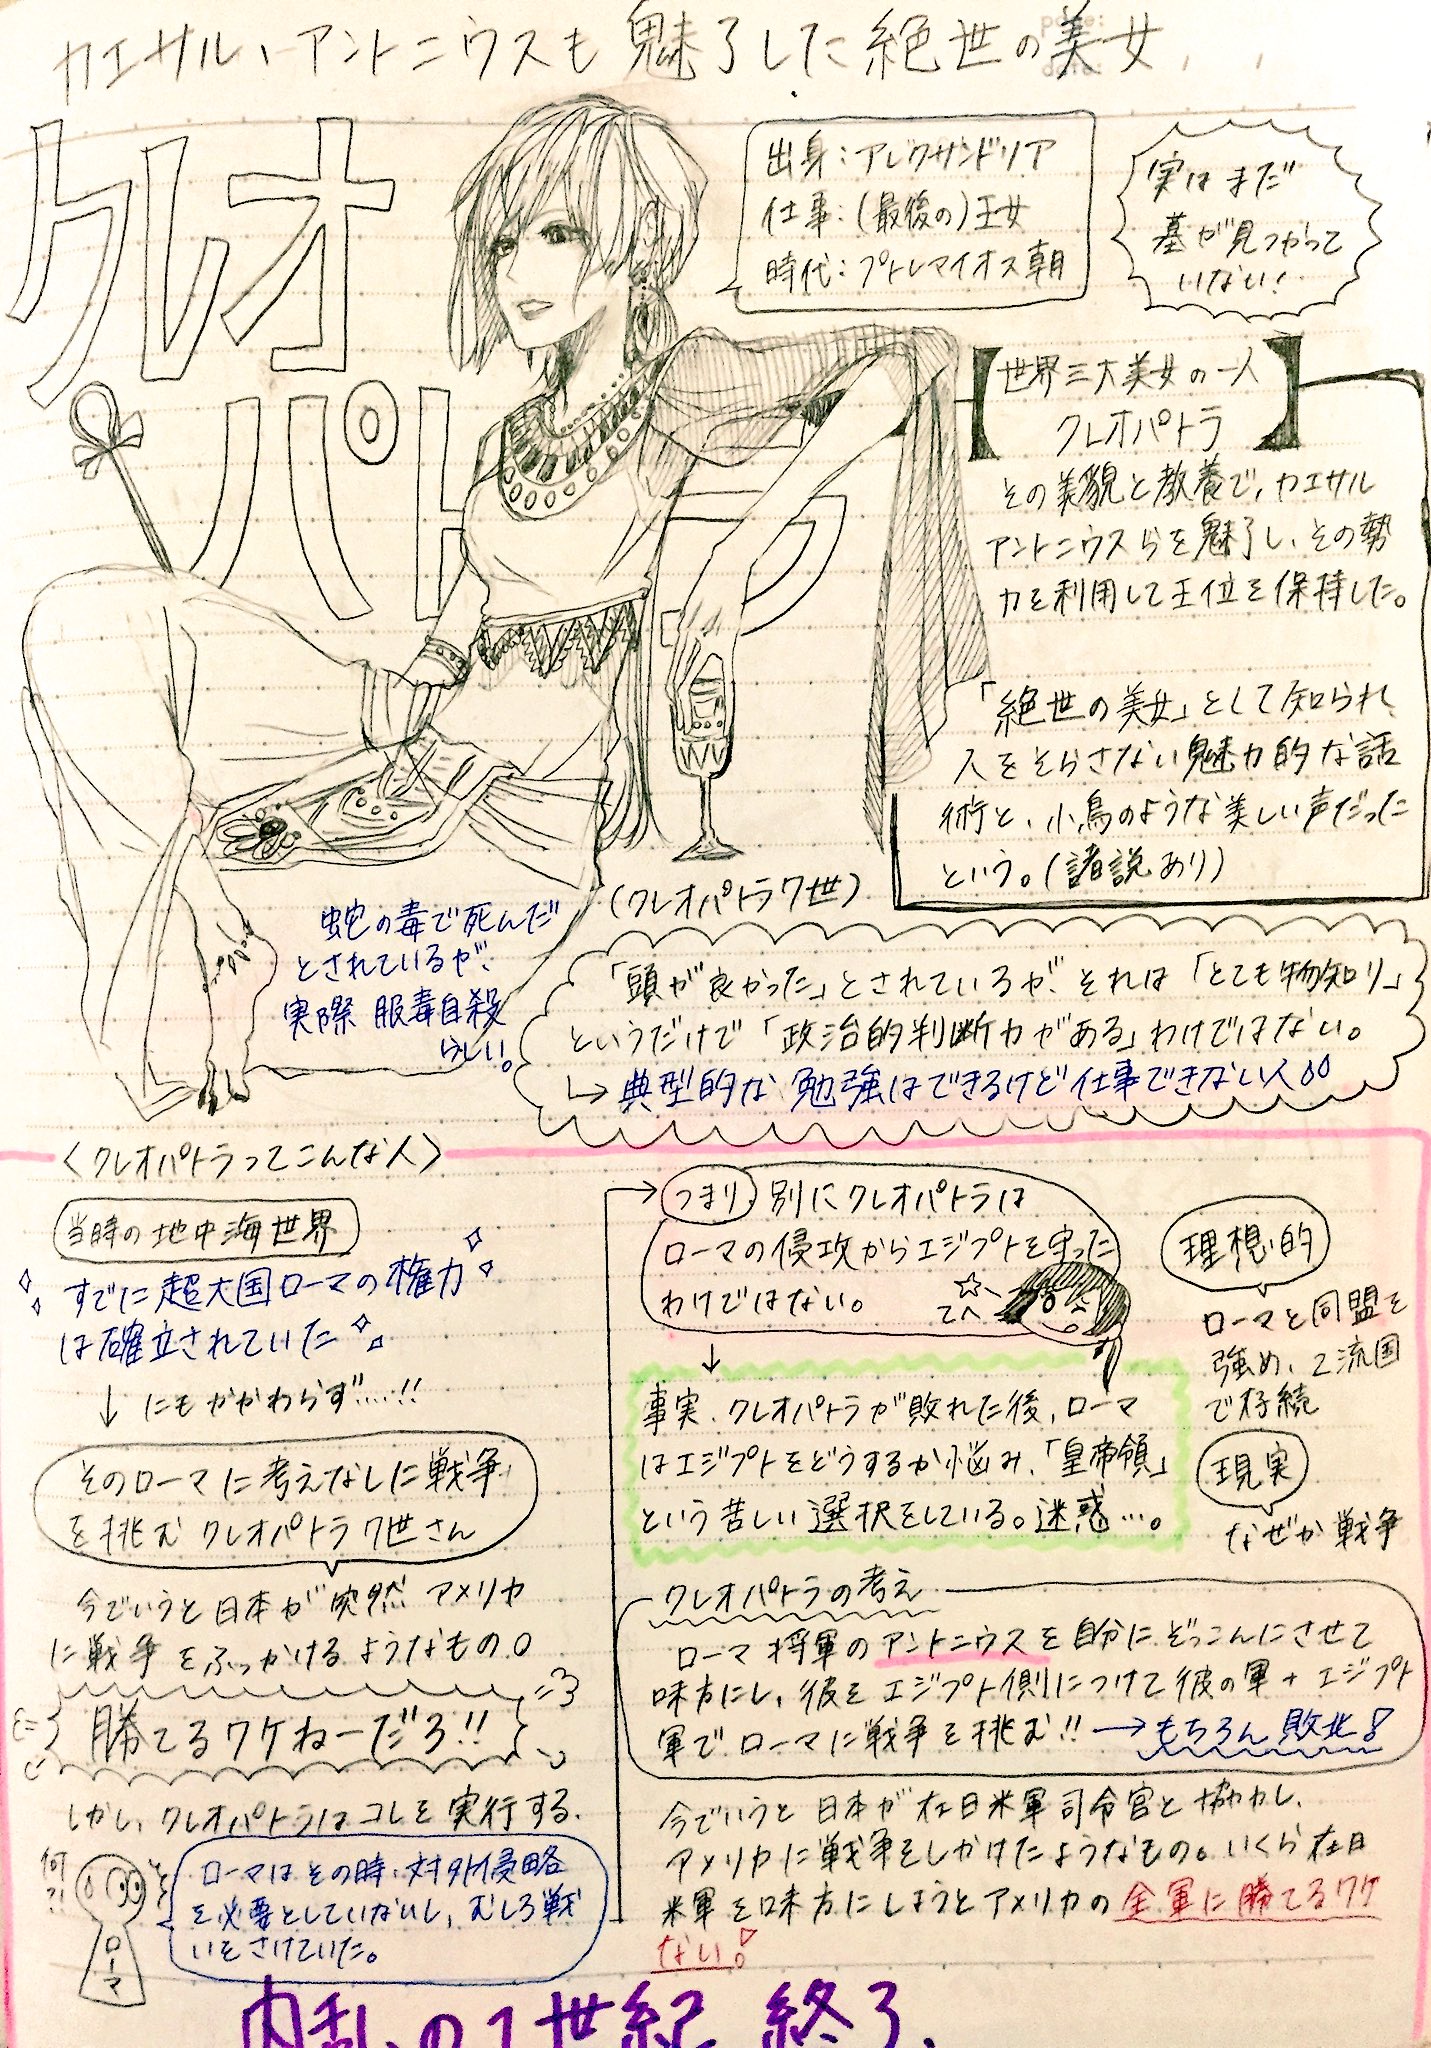 カエサル、アントニウスも魅了した絶世の美女
クレオ
パトラ
出身：アレクサンドリア
仕事：(最後の)王女
時代：プトレマイオス朝
実はまだ
墓が見つかって
いない！
【世界三大美女の一人
クレオパトラ】
その美貌と教養で、カエサル
アントニウスらを魅了し、その勢
力を利用して王位を保持した。
「絶世の美女」として知られ
人をそらさない魅力的な話
術と、小鳥のような美しい声だった
という。(諸説あり)
(クレオパトラ7世)
蛇の毒で死んだ
とされているが、
実際 服毒自殺
らしい。
「頭が良かった」とされているが、それは「とても物知り」
というだけで「政治的判断力がある」わけではない。
↳典型的な 勉強はできるけど仕事できない人
〈クレオパトラってこんな人〉
当時の地中海世界
すでに超大国ローマの権力
は確立されていた
↓にもかかわらず……!!
そのローマに考えなしに戦争
を挑む クレオパトラ7世さん
今でいうと日本が突然 アメリカ
に戦争をふっかけるようなもの。
勝てるワケねーだろ!!
しかし、クレオパトラはコレを実行する。
何?!
ローマ
ローマはその時、対外侵略
を必要としていないし、むしろ戦
いをさけていた。
つまり 別にクレオパトラは
ローマの侵攻からエジプトを守った
わけではない。
てへ
↓
事実、クレオパトラが敗れた後、ローマ
はエジプトをどうするか悩み、「皇帝領」
という苦しい選択をしている。迷惑…。
理想的
ローマと同盟を
強め、2流国
で存続
現実
なぜか戦争
クレオパトラの考え
ローマ将軍のアントニウスを自分にぞっこんにさせて
味方にし、彼をエジプト側につけて彼の軍+エジプト
軍でローマに戦争を挑む!! → もちろん敗北！
今でいうと 日本が在日米軍司令官と協力し、
アメリカに戦争をしかけたようなもの。いくら在日
米軍を味方にしようとアメリカの全軍に勝てるワケ
ない！
内乱の1世紀 終了.